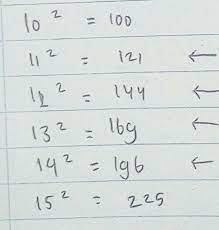 10² = 100
11² = 121 ←
12² = 144 ←
13² = 169 ←
14² = 196 ←
15² = 225